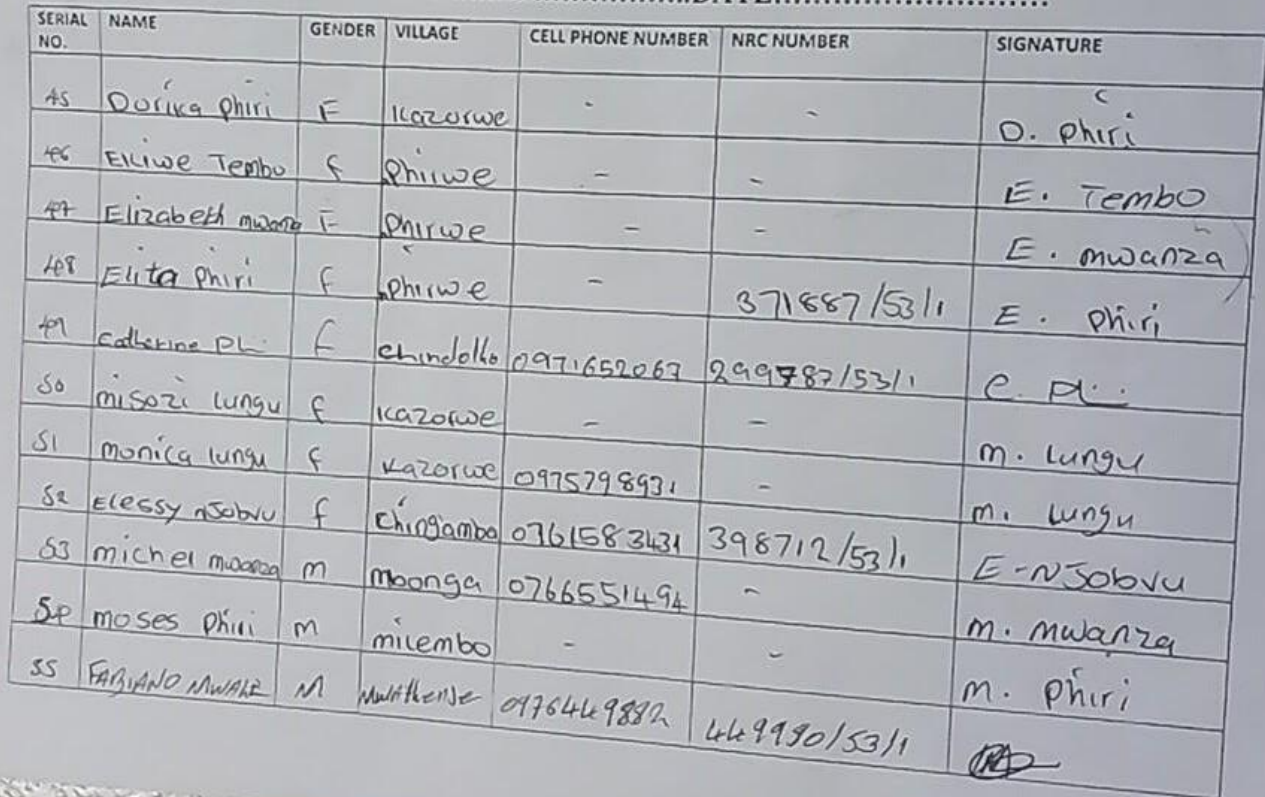 SERIAL NO. NAME GENDER VILLAGE CELL PHONE NUMBER NRC NUMBER SIGNATURE
45 Dorika phiri F Kazorwe - - D. phiri
46 Eliwe Tembo f Phirwe - - E. Tembo
47 Elizabeth mwanza F Phirwe - - E. mwanza
48 Elita phiri f Phirwe - 371887/53/1 E. Phiri
49 Catherine f Chindolko 0971652067 299787/53/1
50 misozi Lungu f Kazorwe - - m. Lungu
51 monica lungu f Kazorwe 0975798931 - m. Lungu
52 Elessy nJobvu f Chingambo 0761583431 398712/53/1 E-NJobvu
53 michel mwanza m mbonga 0766551494 - m. mwanza
54 moses Phiri m milembo - - m. phiri
55 FABIANO MWALE M 0976449882 449990/53/1